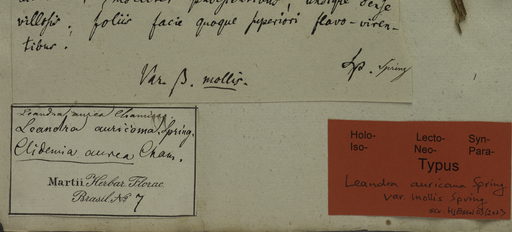 villosis; foliis facie quoque superiori flavo-viren-
tibus;
Var. β. mollis.
Sp. Spring
Leandra aurea Chamisso
Leandra auricoma, Spring.
Clidemia aurea Cham.
Martii Herbar. Florae
Brasil. No 7
Holo- Lecto- Syn-
Iso- Neo- Para-
Typus
Leandra auricoma Spring
var. mollis Spring